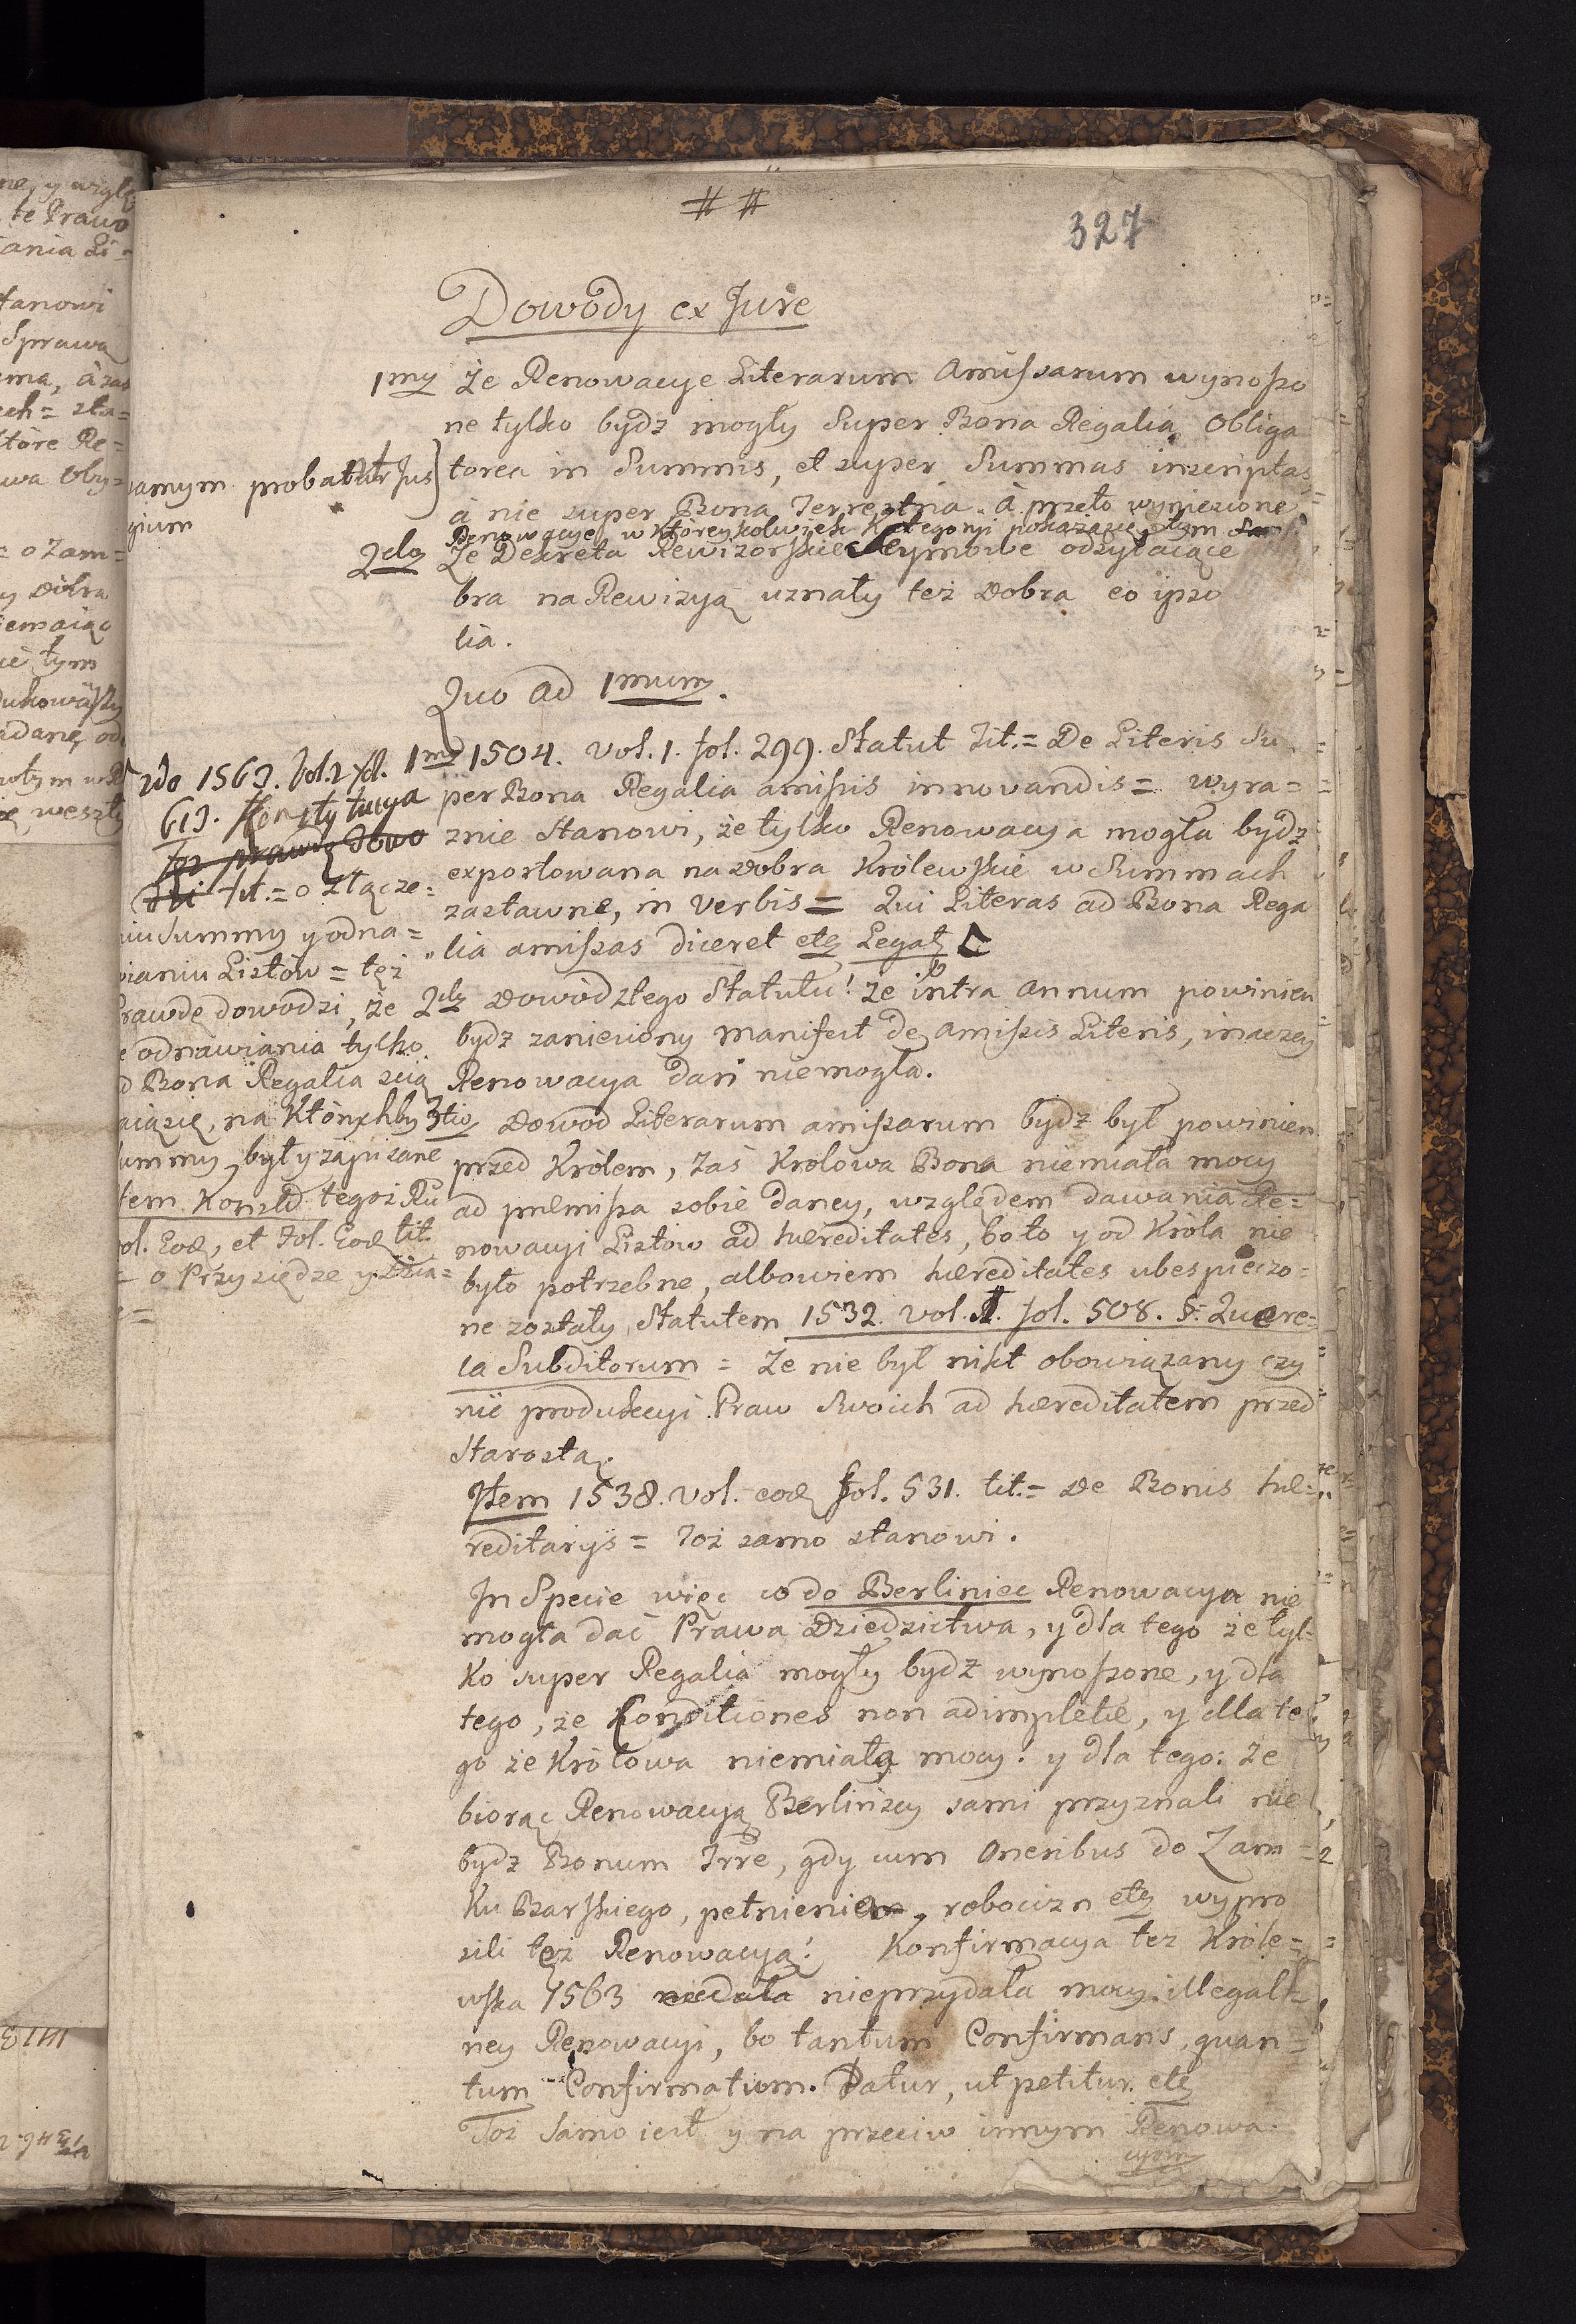 ##
327
Dowody ex Jure
1my Że Renowacye Literarum Amissarum wynoszo
ne tylko bydz mogły Super Bona Regalia Obliga
torea in Summis, et super Summas inscriptas
à nie super Bona Terrestria. à przeto wyniesione
Renowacye w Któreykolwiek Kategoryi pokazuią się, tym
samym probatur Jus
gium
2do Że Dekreta Rewizorskie Seymowe odzyłaiące
bra na Rewizyą uznały też Dobra eo ipso
lia.
Quo ad 1mum.
1mo 1504. vol. 1. fol. 299. Statut Tit. = De Literis Su
per Bona Regalia amissis innovandis = wyra=
znie Stanowi, że tylko Renowacya mogła bydz
exportowana na Dobra Królewskie w Summach
zastawne, in Verbis = Qui Literas ad Bona Rega
"lia amissas diceret etc Legat
2do Dowód z tego Statutu! że intra Annum powinien
bydz zaniesiony Manifest de Amissis Literis, inaczey
Renowacya dari niemogła.
3tio Dowód Literarum amissarum bydz był powinien
przed Królem, zaś Krolowa Bona niemiała mocy
ad præmissa sobie daney, względem dawania Re=
nowacyi Listów ad hæreditates, bo to y od Króla nie
było potrzebne, albowiem hæreditates ubespieczo=
ne zostały Statutem 1532. vol. 1. fol. 508. §: Quere=
la Subditorum = Że nie był nikt obowiązany czy
nić produkcyi Praw Swoich ad hæreditatem przed
Starostą.
Item 1538. vol. eod fol. 531. tit. = De Bonis hæ=
reditarys = Toż samo stanowi.
In Specie więc co do Berliniec Renowacya nie
mogła dać Prawa Dziedzictwa, y dla tego że tyl=
ko super Regalia mogły bydz wynoszone, y dla
tego, że Conditiones non adimpletæ, y dla te
go że Królowa niemiała mocy. y dla tego: że
biorąc Renowacyą Berlińscy sami przyznali nie
bydz Bonum Trre, gdy cum Oneribus do Zam=
ku Barskiego, pełnienie, robocizn etc wypro
sili też Renowacyą! Konfirmacya też Króle=
wska 1563 niedała nieprzydała mocy illegal=
ney Renowacyi, bo tantum Confirmans, quan=
tum Confirmatum. Datur, ut petitur. etc
Toż Samo iest y na przeciw innym Renowa.
cyom
2do 1563. Vol. 2 fol.
613. Konstytucya
tit. = o złącze=
niu Summy y odna=
wianiu Listów = też
Prawdę dowodzi, że
odnawiania tylko
Bona Regalia scią
gaią się, na Którychby
Summy były zapisane
Item Konstd tegoż Ru
vol. Eod, et Fol. Eod tit.
= o Przysiędze y